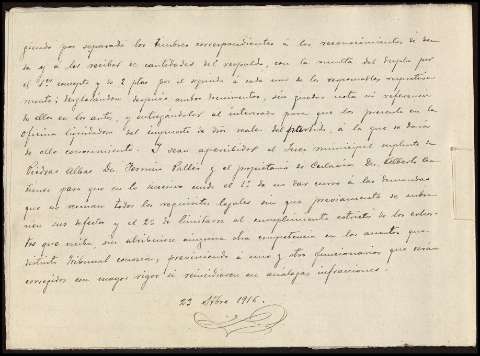 giendo por separado los timbres correspondientes á los reconocimientos de deu
da y á los recibos de cantidades del respaldo, con la multa del duplo por
el 1er concepto y de 2 ptas por el segundo á cada uno de los responsables respectiva
mente; desglosándose después ambos documentos, sin quedar nota ni referencia
de ellos en los autos, y entregándolos al interesado para que los presente en la
oficina liquidadora del impuesto de dros reales del partido, á la que se dará
de ello conocimiento. Y sean apercibidos el Juez municipal suplente de
Piedras Albas Dn. Fermin Valles y el propietario de Ceclavin Dn. Alberto An
tunes para que en lo sucesivo cuide el 1º de no dar curso á las demandas
que no reunan todos los requisitos legales sin que previamente se subsa
nen sus defectos y el 2º de limitarse al cumplimiento estricto de los exhor
tos que reciba, sin atribuirse ninguna otra competencia en los asuntos que
distinto Tribunal conozca, previniendo á uno y otro funcionarios que serán
corregidos con mayor rigor si reincidieren en análogas infracciones.
23 Stbre 1916.